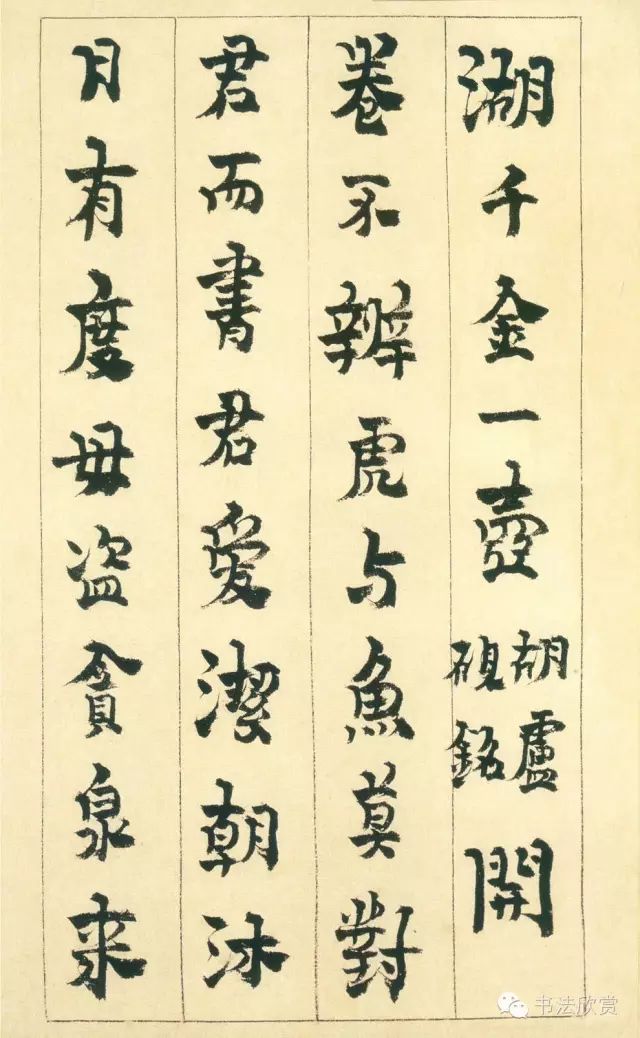 湖千金一壺
胡盧
硯銘
開
卷不辨虎与魚莫對
君而書君愛潔朝沐
月有度毋盜貪泉来
书法欣赏